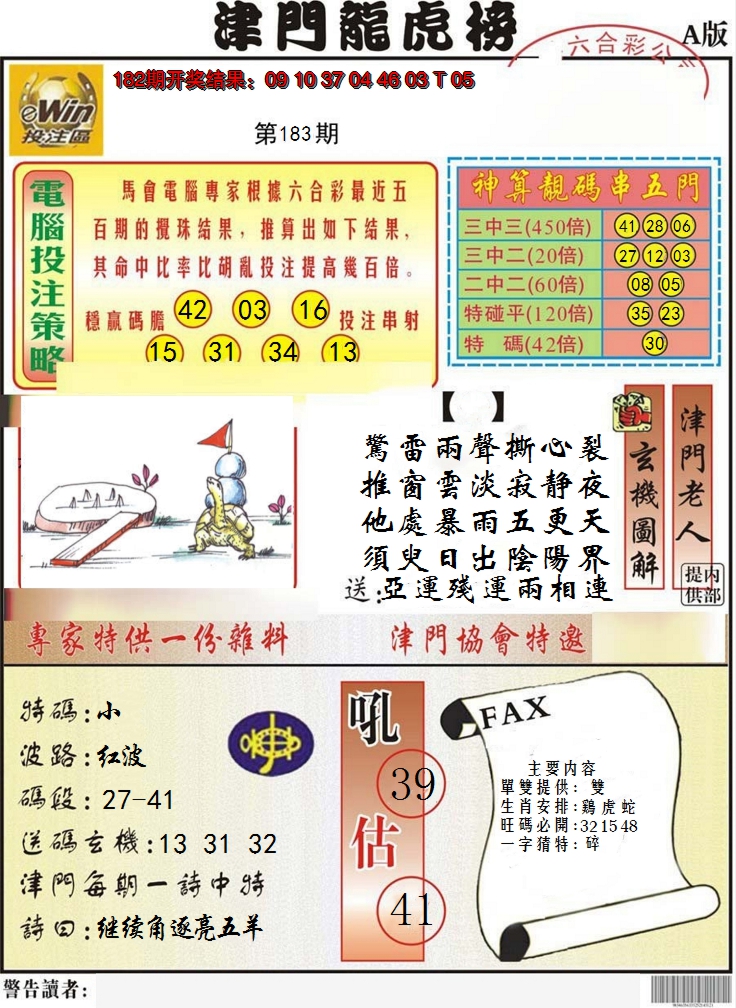 津門龍虎榜
A版
六合彩公
eWin
投注區
182期开奖结果：09 10 37 04 46 03 T 05
第183期
電腦投注策略
馬會電腦專家根據六合彩最近五
百期的攪珠结果，推算出如下结果，
其命中比率比胡亂投注提高幾百倍。
穩贏碼膽 42 03 16 投注串射
15 31 34 13
神算靚碼串五門
三中三(450倍) 41 28 06
三中二(20倍) 27 12 03
二中二(60倍) 08 05
特碰平(120倍) 35 23
特 碼(42倍) 30
【 】
驚雷雨聲撕心裂
推窗雲淡寂静夜
他處暴雨五更天
須臾日出陰陽界
送:亞運殘運兩相連
玄機圖解
津門老人
内部提供
專家特供一份雜料
津門協會特邀
特碼:小
波路:红波
碼段:27-41
送碼玄機:13 31 32
津門每期一詩中特
詩曰:继续角逐亮五羊
吼
39
估
41
FAX
主要内容
單雙提供：雙
生肖安排:鷄虎蛇
旺碼必開:32 15 48
一字猜特:碎
警告讀者：